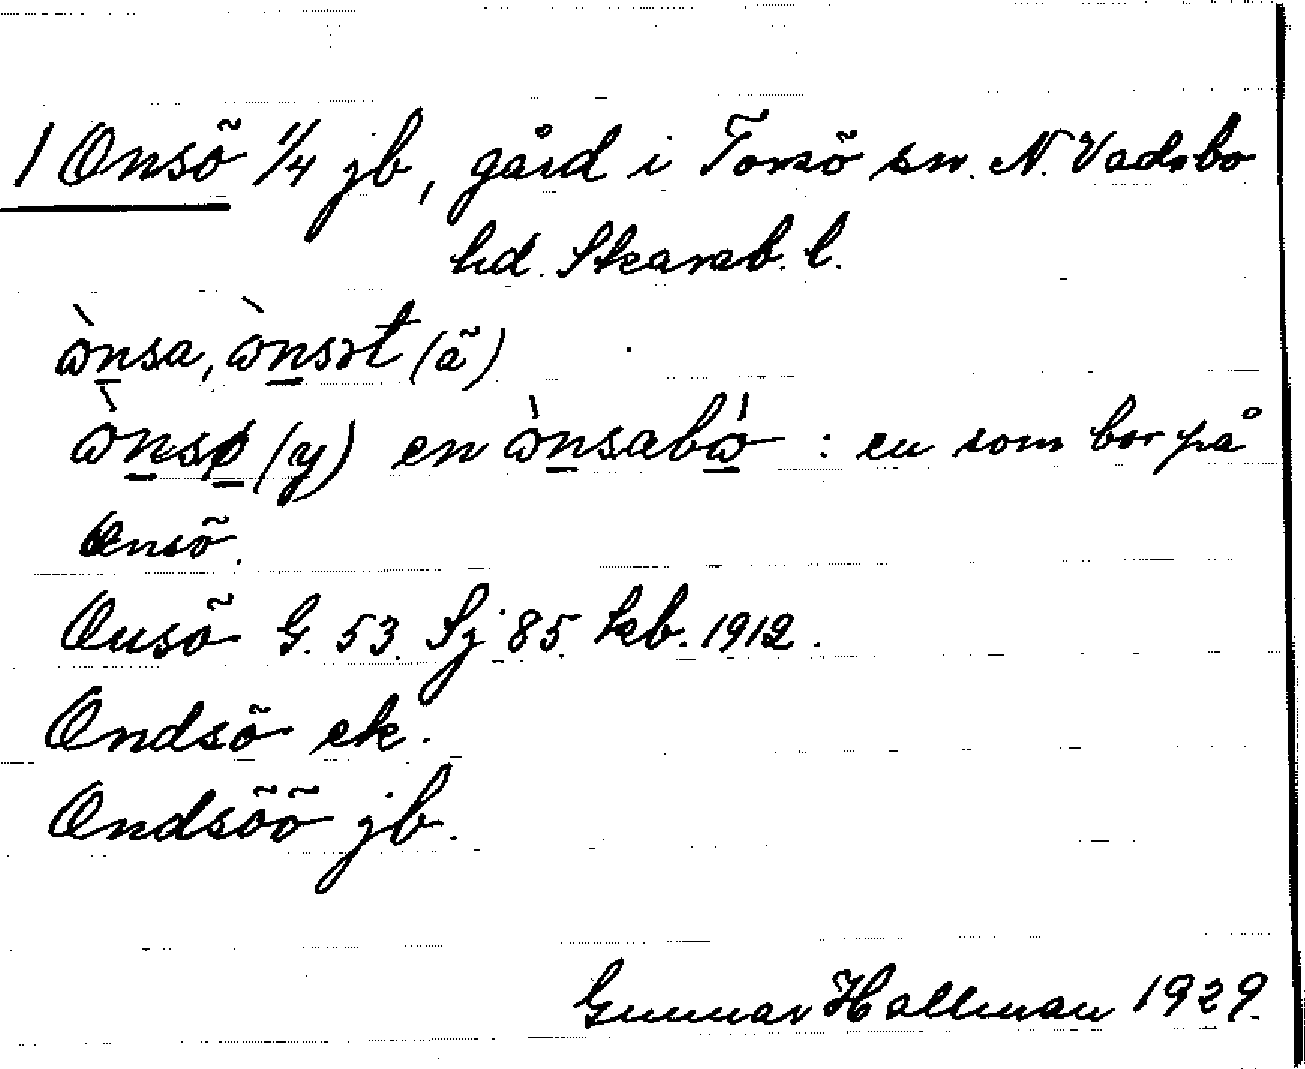 1 Onsö 1/4 jb, gård i Torsö sn. N. Vadsbo
hd. Skarab. l.
ὼnsa, ὼnsɔt (ä)
ὼnsø (y) en ὼnsabὼ : en som bor på
Onsö.
Onsö G. 53. Sj 85. kb. 1912.
Ondsö ek.
Ondsöö jb.
Gunnar Hallman 1929.